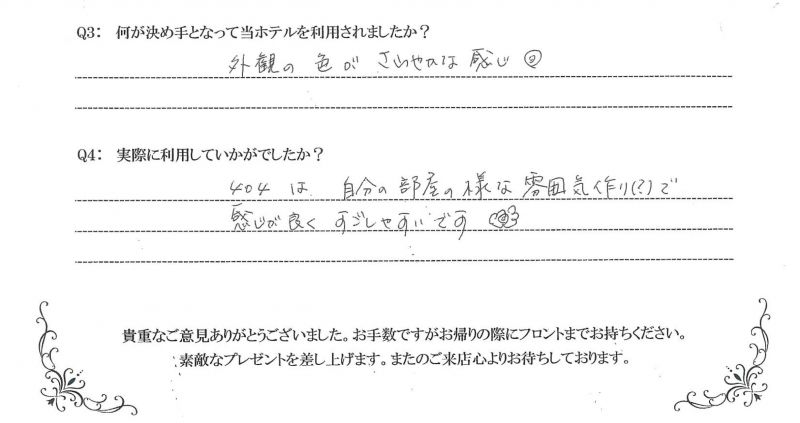 Q3: 何が決め手となって当ホテルを利用されましたか?
外観の色が さわやかな 感じ
Q4: 実際に利用していかがでしたか?
404 は 自分の部屋の様な雰囲気作り(?)で
感じが良く すごしやすいです
貴重なご意見ありがとうございました。お手数ですがお帰りの際にフロントまでお持ちください。
素敵なプレゼントを差し上げます。またのご来店心よりお待ちしております。